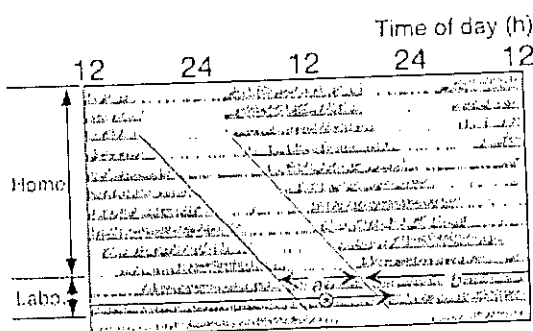 Time of day (h)
12 24 12 24 12
Home
Labo.
a
b